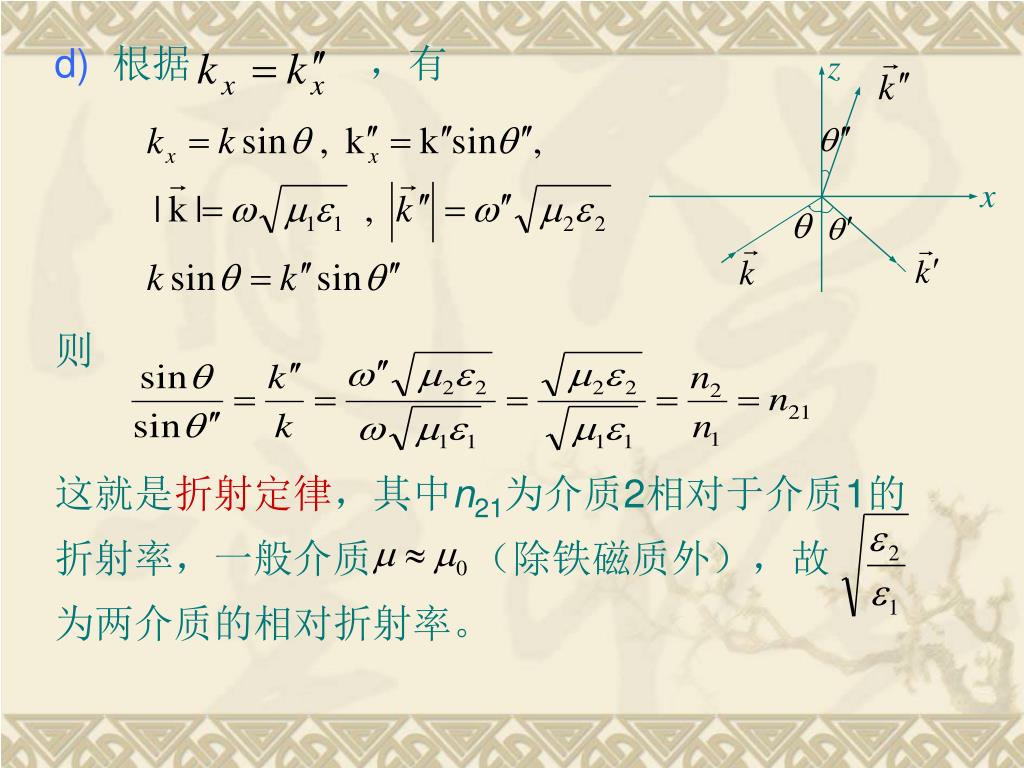 d) 根据 kₓ = k″ₓ ，有
kₓ = k sinθ , k″ₓ = k″sinθ″,
|k⃗| = ω√μ₁ε₁ , |k⃗″| = ω″√μ₂ε₂
k sinθ = k″ sinθ″
则
sinθ / sinθ″ = k″ / k = ω″√μ₂ε₂ / ω√μ₁ε₁ = √μ₂ε₂ / √μ₁ε₁ = n₂ / n₁ = n₂₁
这就是折射定律，其中n₂₁为介质2相对于介质1的
折射率，一般介质 μ ≈ μ₀ （除铁磁质外），故 √(ε₂/ε₁)
为两介质的相对折射率。
z
k⃗″
θ″
x
θ θ′
k⃗
k⃗′